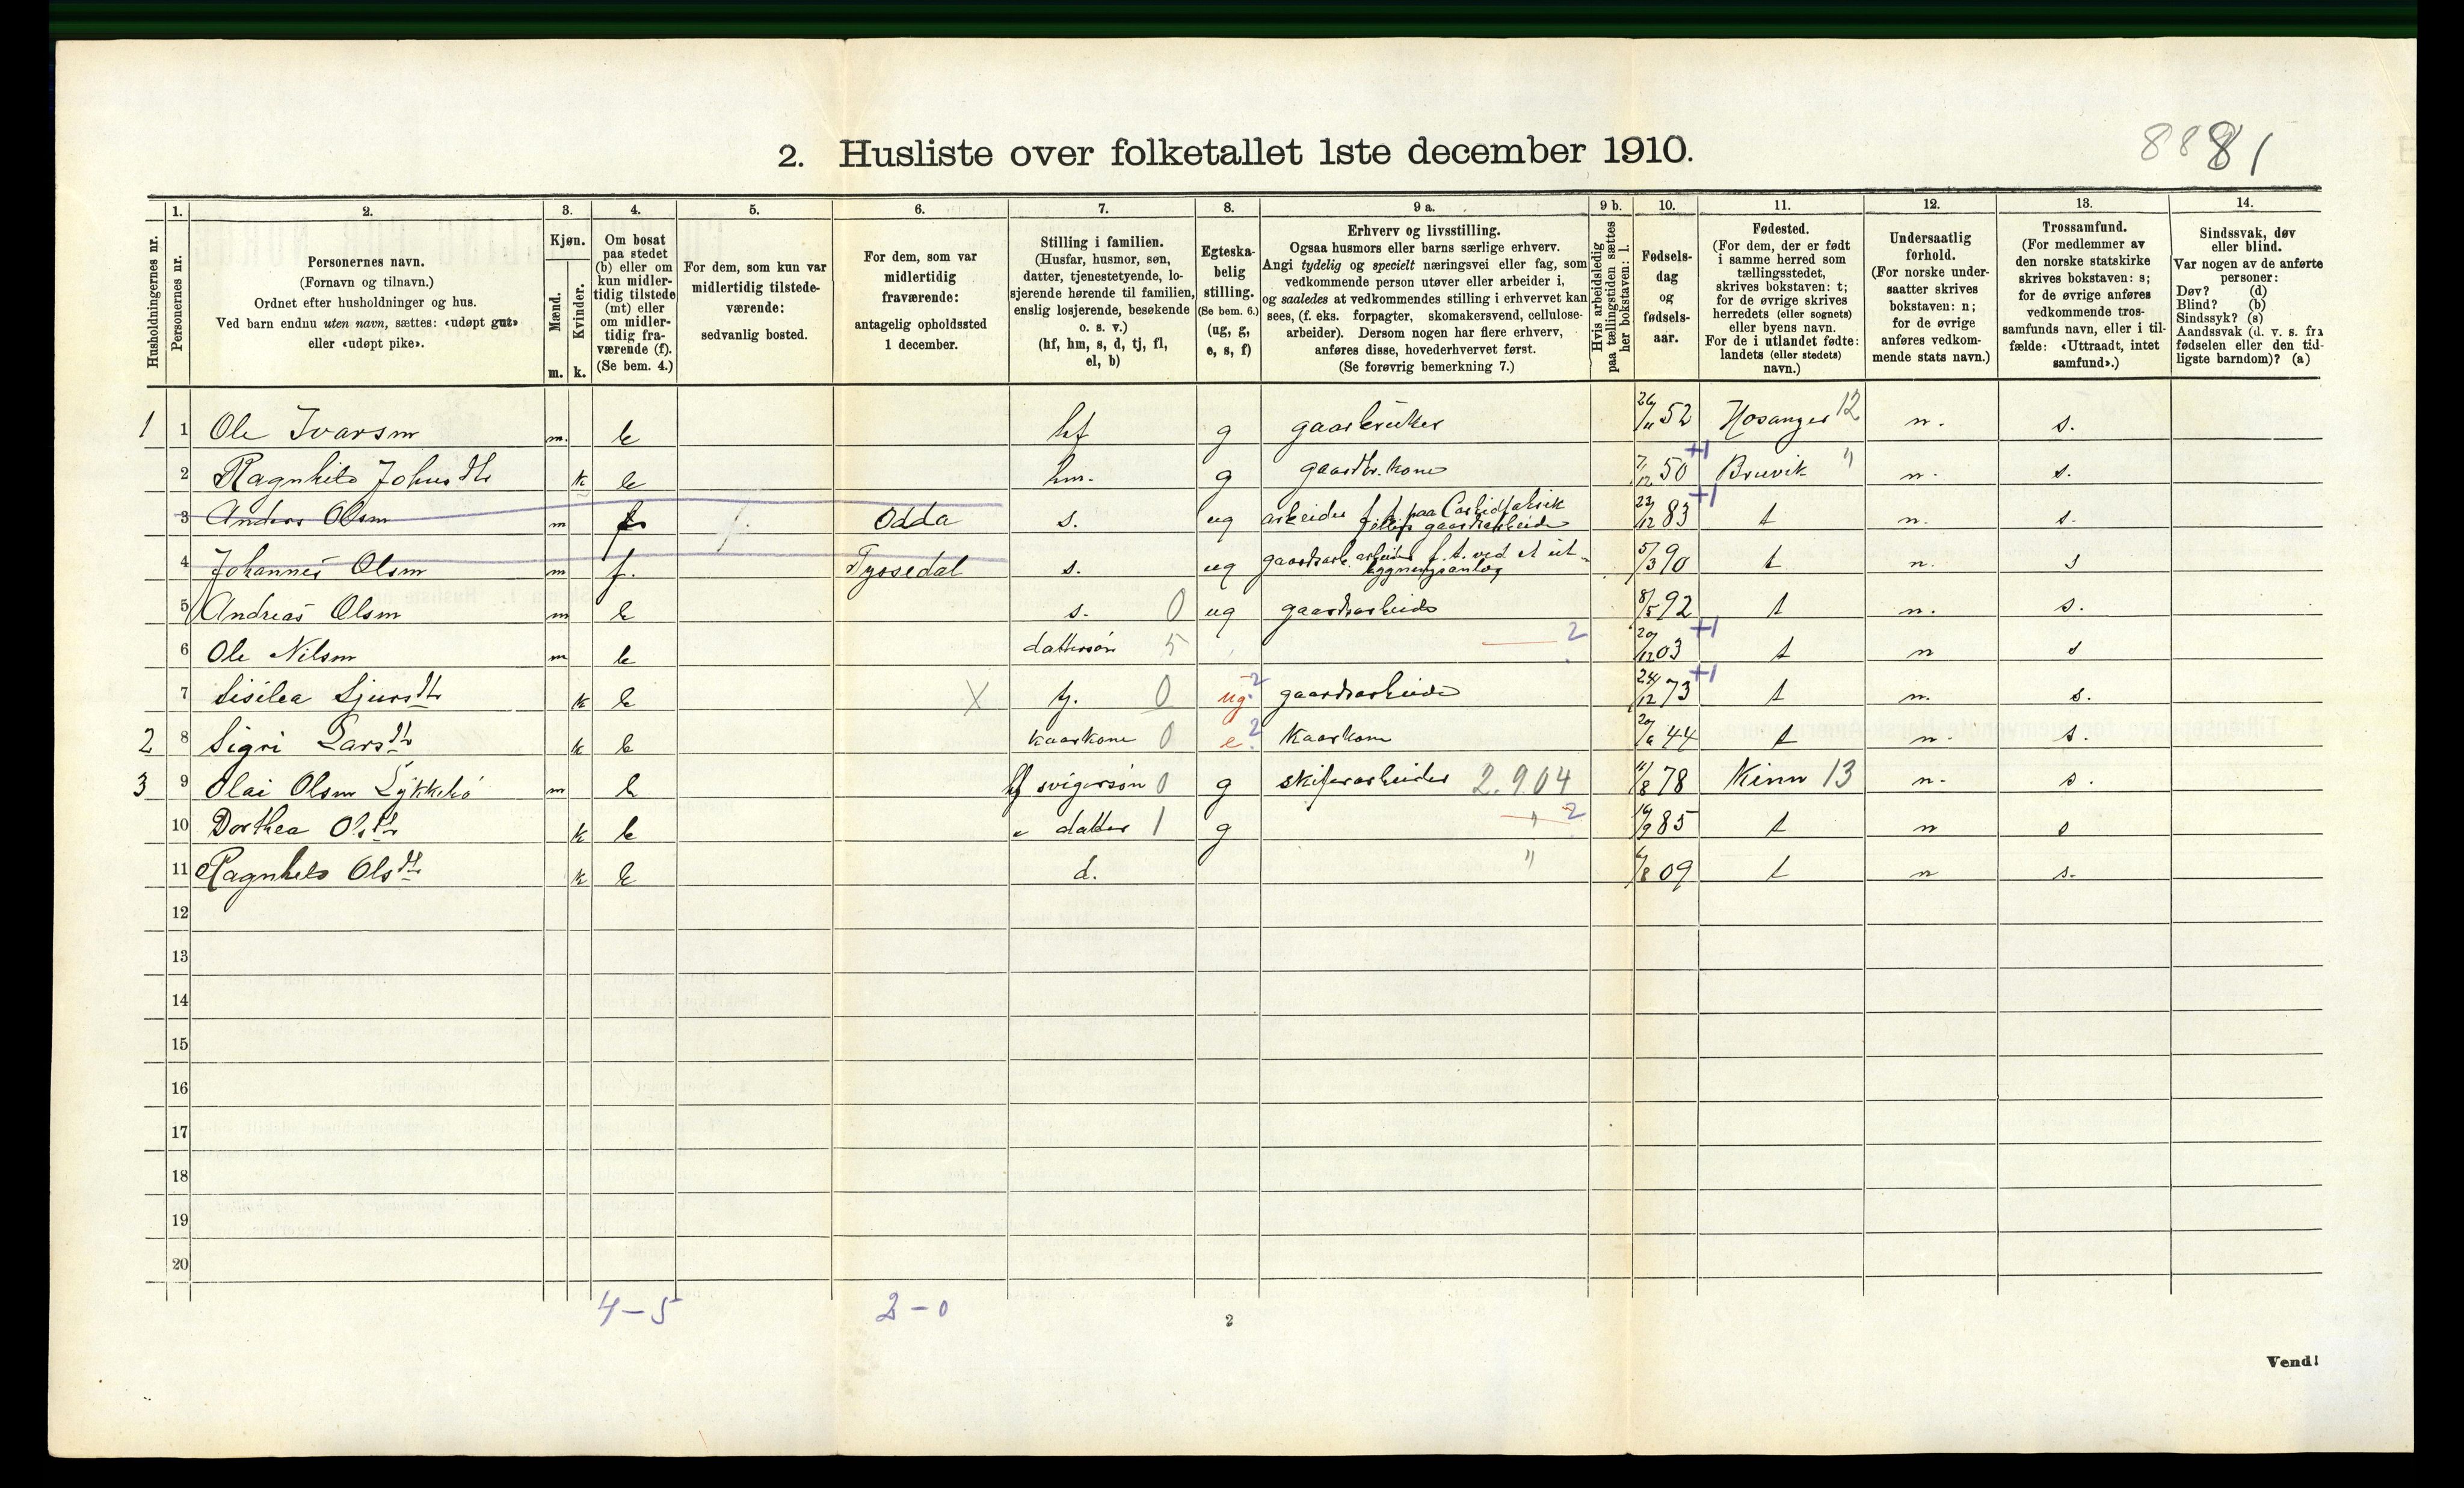 8881
2. Husliste over folketallet 1ste december 1910.
Husholdningernes nr.
1. Personernes nr.
2. Personernes navn.
(Fornavn og tilnavn.)
Ordnet efter husholdninger og hus.
Ved barn endnu uten navn, sættes: «udøpt gut»
eller «udøpt pike».
3. Kjøn.
Mænd. m.
Kvinder. k.
4. Om bosat
paa stedet
(b) eller om
kun midler-
tidig tilstede
(mt) eller
om midler-
tidig fra-
værende (f).
(Se bem. 4.)
5. For dem, som kun var
midlertidig tilstede-
værende:
sedvanlig bosted.
6. For dem, som var
midlertidig
fraværende:
antagelig opholdssted
1 december.
7. Stilling i familien.
(Husfar, husmor, søn,
datter, tjenestetyende, lo-
sjerende hørende til familien,
enslig losjerende, besøkende
o. s. v.)
(hf, hm, s, d, tj, fl,
el, b)
8. Egteska-
belig
stilling.
(Se bem. 6.)
(ug, g,
e, s, f)
9 a. Erhverv og livsstilling.
Ogsaa husmors eller barns særlige erhverv.
Angi tydelig og specielt næringsvei eller fag, som
vedkommende person utøver eller arbeider i,
og saaledes at vedkommendes stilling i erhvervet kan
sees, (f. eks. forpagter, skomakersvend, cellulose-
arbeider). Dersom nogen har flere erhverv,
anføres disse, hovederhvervet først.
(Se forøvrig bemerkning 7.)
9 b. Hvis arbeidsledig
paa tællingstiden sættes
her bokstaven: l.
10. Fødsels-
dag
og
fødsels-
aar.
11. Fødested.
(For dem, der er født
i samme herred som
tællingsstedet,
skrives bokstaven: t;
for de øvrige skrives
herredets (eller sognets)
eller byens navn.
For de i utlandet fødte:
landets (eller stedets)
navn.)
12. Undersaatlig
forhold.
(For norske under-
saatter skrives
bokstaven: n;
for de øvrige
anføres vedkom-
mende stats navn.)
13. Trossamfund.
(For medlemmer av
den norske statskirke
skrives bokstaven: s;
for de øvrige anføres
vedkommende tros-
samfunds navn, eller i til-
fælde: «Uttraadt, intet
samfund».)
14. Sindssvak, døv
eller blind.
Var nogen av de anførte
personer:
Døv? (d)
Blind? (b)
Sindssyk? (s)
Aandssvak (d. v. s. fra
fødselen eller den tid-
ligste barndom)? (a)
1 1 Ole Ivarsen m. b hf g gaardbruker 26/11 52 Hosanger 12 n. s.
2 Ragnhild Johns dtr k b hm. g gaardbr. kone 7/12 50 +1 Bruvik " n. s.
3 Anders Olsen m f Odda s. ug arbeider f. t. paa Carbidfabrik gaardsarbeide 23/12 83 +1 t n. s.
4 Johannes Olsen m f. Tyssedal s. ug gaardsarb. arbeider f. t. ved et ut-
bygningsanlæg 5/3 90 t n. s
5 Andreas Olsen m b s. 0 ug gaardsarbeide 8/5 92 t n. s.
6 Ole Nilsen m b dattersøn 5 2 20/12 03 +1 t n s
7 Sisilea Sjursdtr k b X tj. 0 ug. 2 gaardsarbeide 24/12 73 +1 t n. s.
2 8 Sigri Larsdtr k b kaarkone 0 e. 2 Kaarkone 20/6 44 t n. s.
3 9 Olai Olsen Lykkebø m b hf svigersøn 0 g skiferarbeider 2.9.04 /8 78 Kinn 13 n. s.
10 Dorthea Olsdtr k b datter 1 g " 2 /9 85 t n s
11 Ragnhild Olsdtr k b d. " 6/8 09 t n s.
12
13
14
15
16
17
18
19
20
4 – 5 2 – 0
2
Vend!